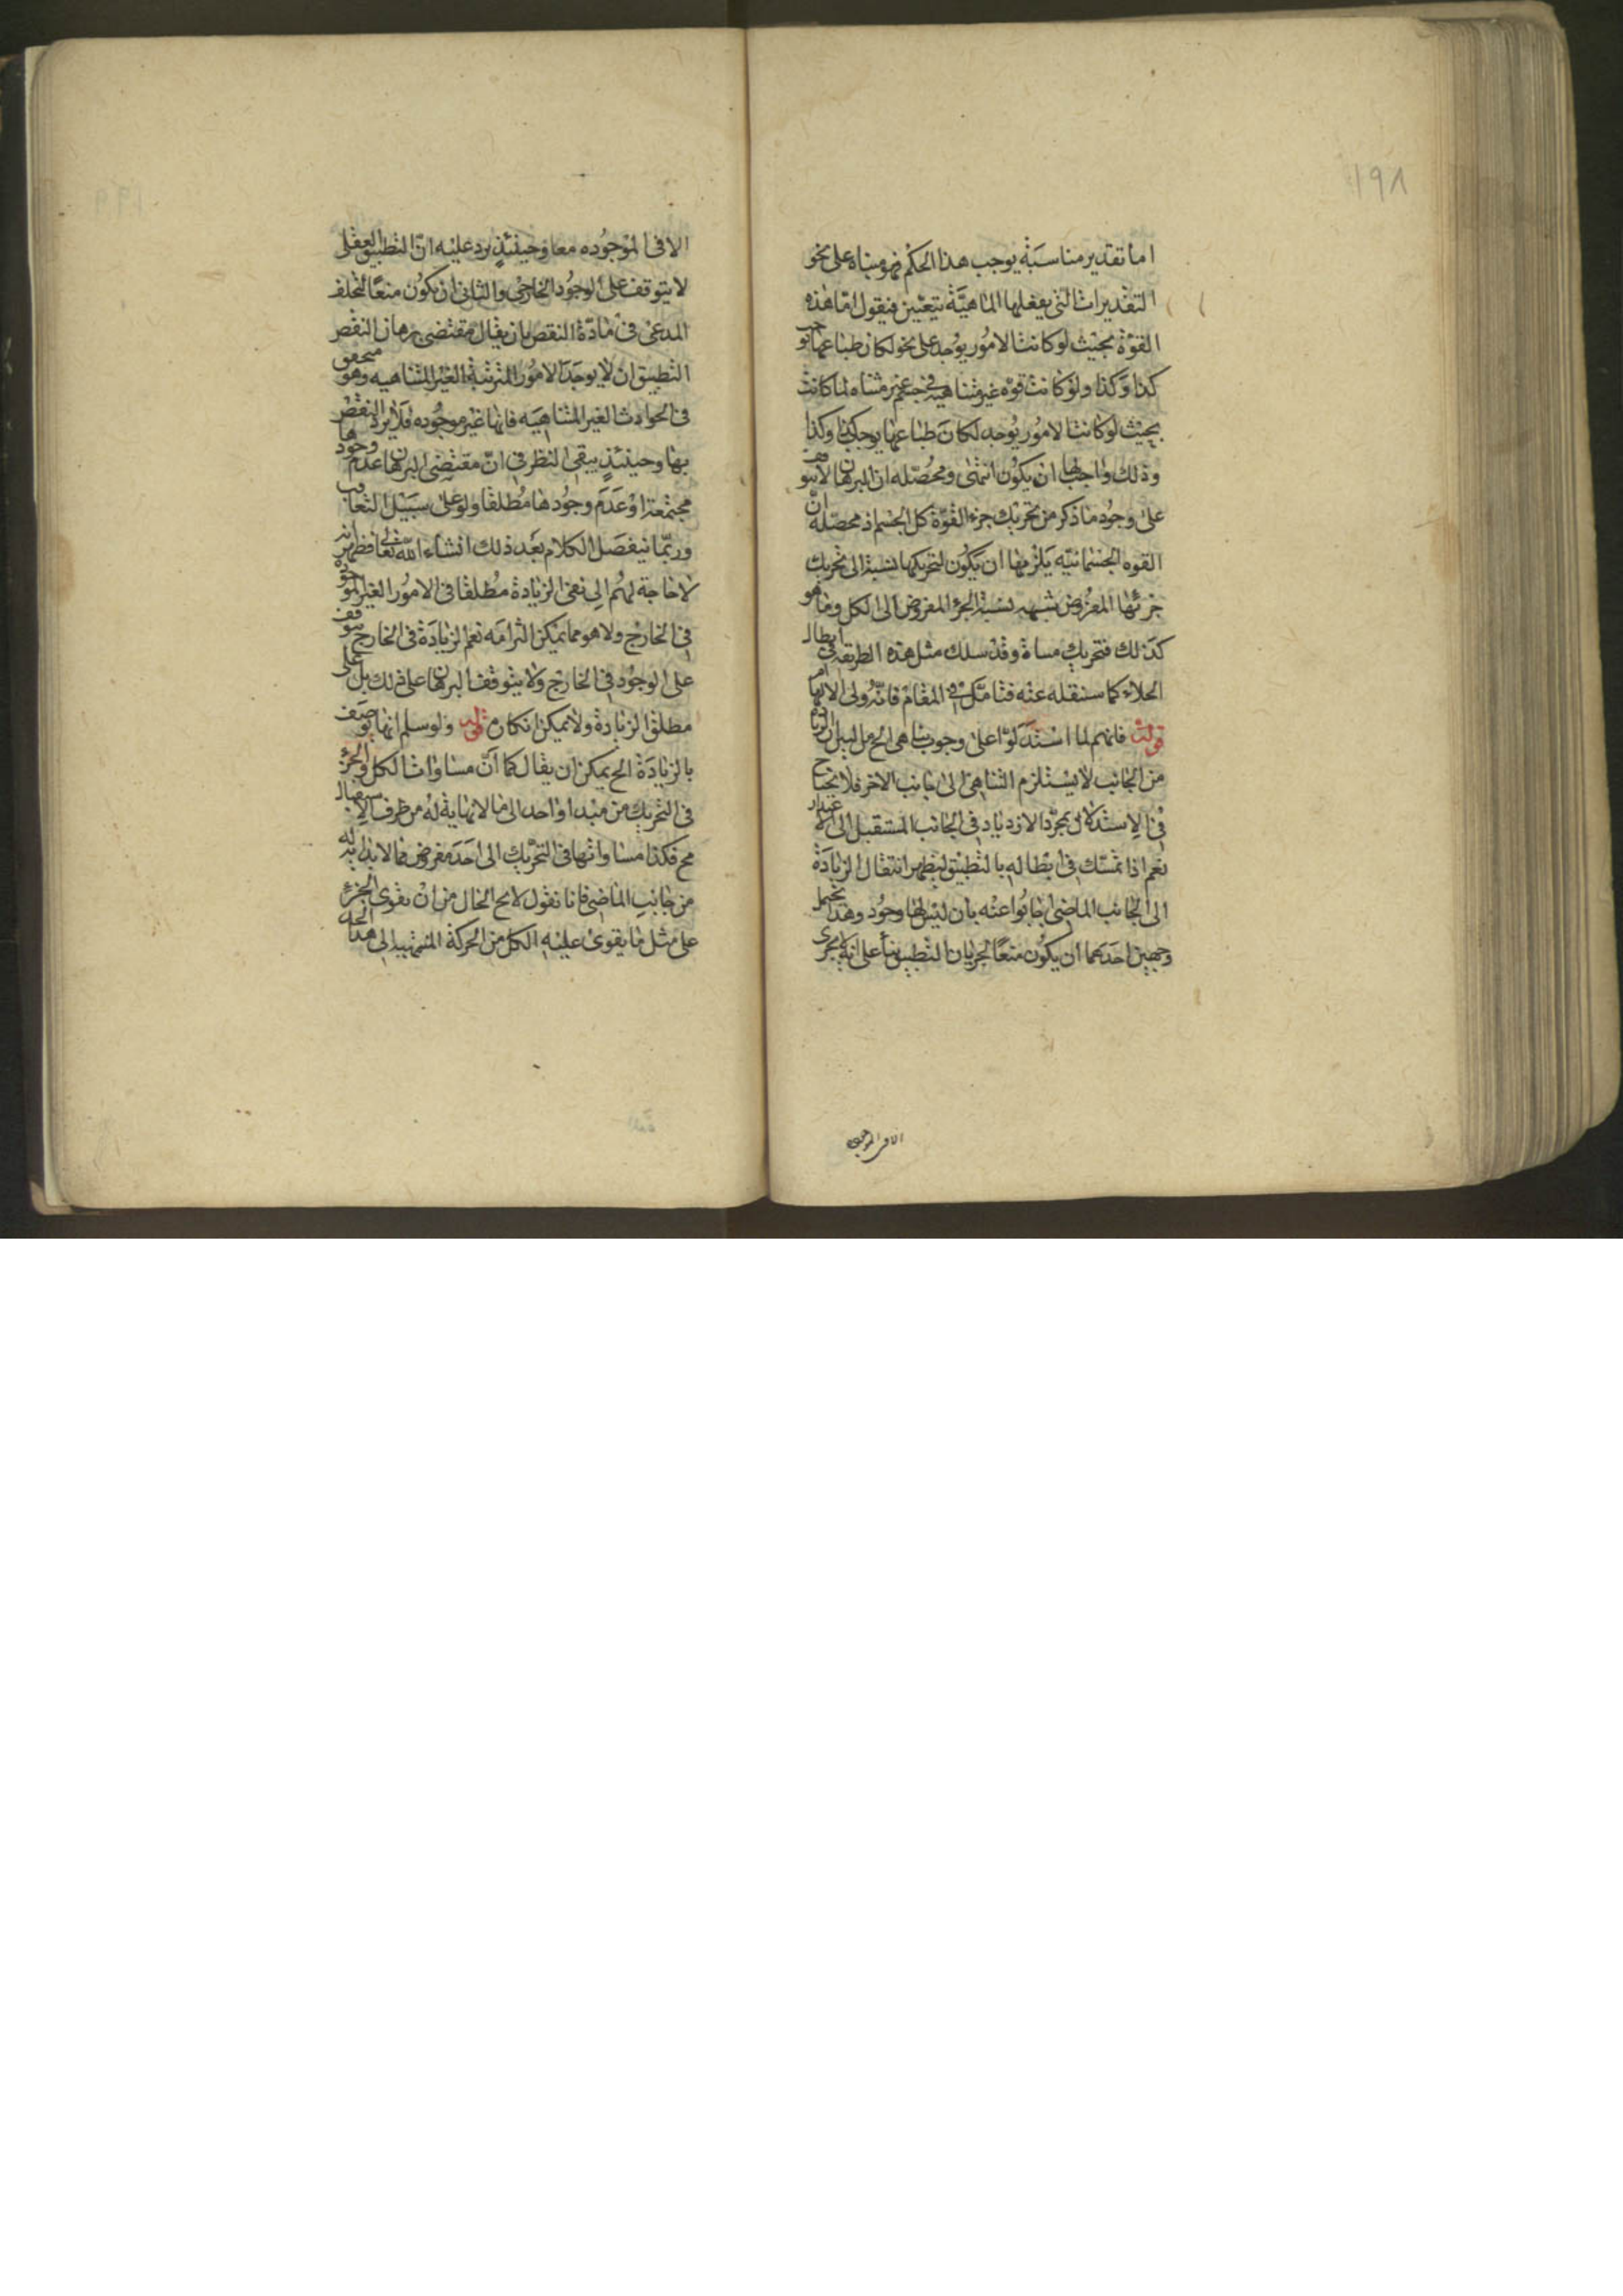 ١٩٨
اما تقدير مناسبة يوجب هذا الحكم فهو مبناه على نحو
التقديرات التى يفعلها الماهية يتعين فيقول اما هذه
القوة بحيث لو كانت الامور يوجد على نحو لكان طباعها توجب
كذا وكذا ولو كانت قوة غير متناهية فى جسم غير متناه لما كانت
بحيث لو كانت الامور يوجد لكان طباعها يوجب كذا وكذا
وذلك واجب لها ان يكون انتهى ومحصّله ان البرهان لا يتوقف
على وجود ما ذكر من تحريك جزء القوة كل الجسم اذ محصّله انّ
القوه الجسمانيّه يلزمها ان يكون لتحريكها نسبة الى تحريك
جزئها المفروض شبهه نسبة الجزء المفروض الى الكل وما هو
كذلك فتحريك مساة وقد سلك مثل هذه الطريقه فى ابطال
الخلاء كما سننقله عنه فتامّل فى المقام فانّه ولى الالهام
قولت فانهم لما استدلوا على وجوب تناهى الخ من البين ان الزيادة
من الجانب لا يستلزم التناهى الى جانب الاخر فلا يحتاج
فى الاستدلال بمجرّد الازدياد فى الجانب المستقبل الى الاعتذار
نعم اذا تمسّك فى ابطاله بالتطبيق ليظهر انتقال الزيادة
الى الجانب الماضى اجابوا عنه بان ليس لها وجود وهذا يحتمل
وجهين احدهما ان يكون منعا لجريان التطبيق بناء على انه لا يجرى
الا فى الموجوده
الا فى الموجوده معا وحينئذٍ يرد عليه انّ التطبيق العقلى
لا يتوقف على الوجود الخارجى والثانى ان يكون منعا لتخلف
المدعى فى مادّة النقص بان يقال مقتضى برهان النقص
التطبيق ان لا يوجد الامور المترتبة الغير المتناهيه وهو متحقق
فى الحوادث الغير المتناهيه فانها غير موجوده فلا يرد النقص
بها وحينئذٍ يبقى النظر فى انّ مقتضى البرهان عدم وجودها
مجتمعة او عدم وجودها مطلقا ولو على سبيل التعاقب
وربّما نيفصل الكلام بعد ذلك انشاء اللّه تعالى فظهر انه
لا حاجة لهم الى نفى الزيادة مطلقا فى الامور الغير الموجوده
فى الخارج ولا هو مما يمكن التزامه نعم الزيادة فى الخارج يتوقف
على الوجود فى الخارج ولا يتوقف البرهان على ذلك بل على
مطلق الزيادة ولا يمكن انكاره قوله ولو سلم انها توصف
بالزيادة الخ يمكن ان يقال كما انّ مساوات الكل والجزء
فى التحريك من مبدا واحد الى ما لا نهاية له من طرف الاستقبال
مح فكذا مساواتها فى التحريك الى احد مفروض مما لا بداية له
من جانب الماضى فانا نقول لا يح الحال من ان يقوى الجزء
على مثل ما يقوى عليه الكل من الحركة المنتهيه الى هذا الحد